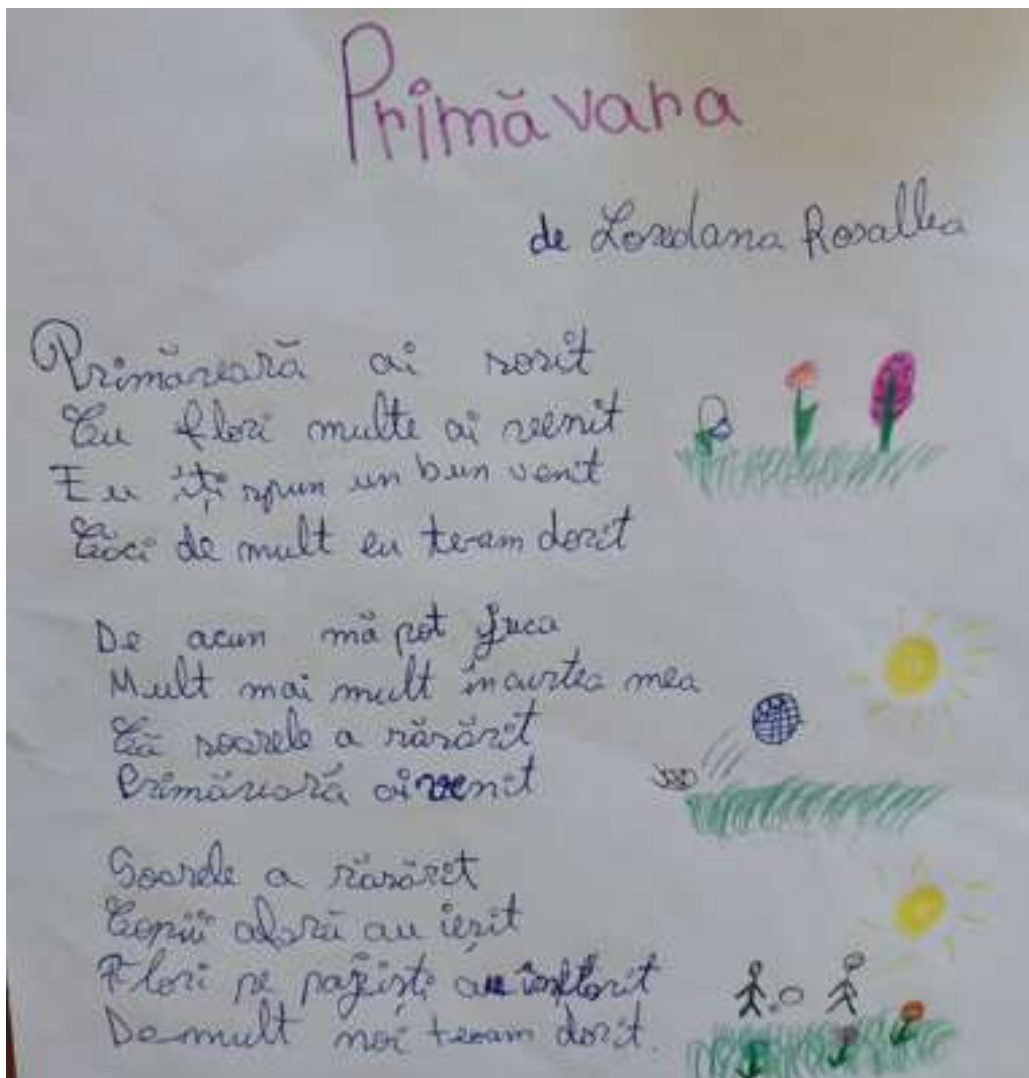 Primăvara
de Loredana Rosallea
Primăvară ai sosit
Cu flori multe ai venit
Eu îți spun un bun venit
Căci de mult eu te-am dorit
De acun mă pot juca
Mult mai mult în curtea mea
Că soarele a răsărit
Primăvară ai venit
Soarele a răsărit
Copii afară au ieșit
Flori pe pajiști au înflorit
De mult noi te-am dorit.